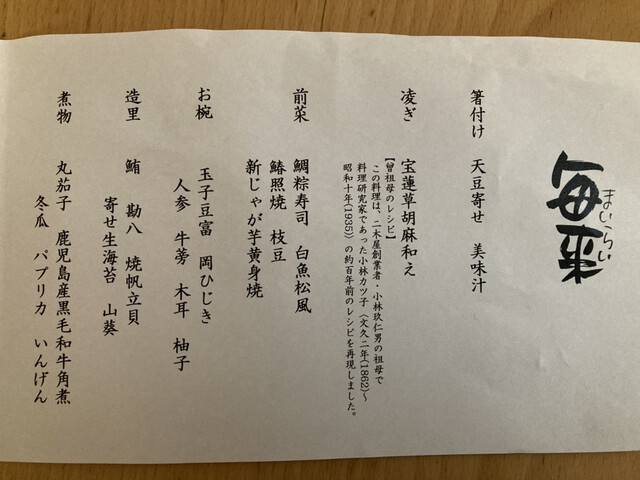 毎来
まいらい
箸付け 天豆寄せ 美味汁
凌ぎ 宝蓮草胡麻和え
【曾祖母のレシピ】
この料理は、二木屋創業者 小林玖仁男の祖母で
料理研究家であった小林カツ子(文久二年(1862)〜
昭和十年(1935)) の約百年前のレシピを再現しました。
前菜 鯛粽寿司 白魚松風
鰆照焼 枝豆
新じゃが芋黄身焼
お椀 玉子豆富 岡ひじき
人参 牛蒡 木耳 柚子
造里 鮪 勘八 焼帆立貝
寄せ生海苔 山葵
煮物 丸茄子 鹿児島産黒毛和牛角煮
冬瓜 パプリカ いんげん